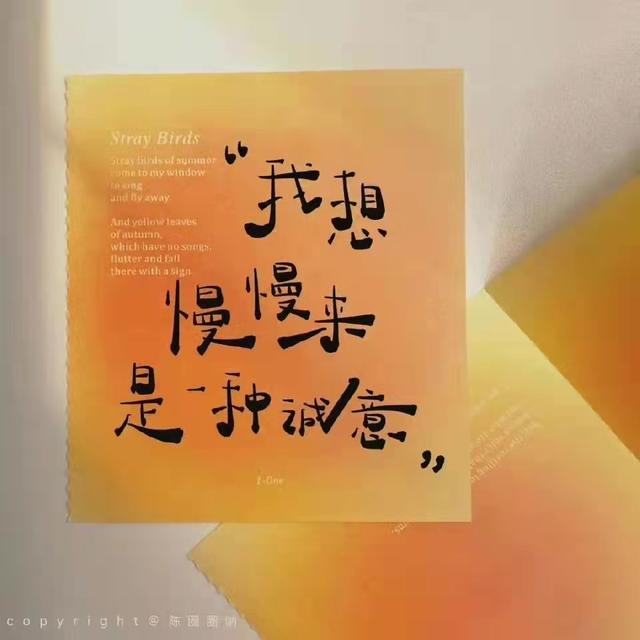 Stray Birds
Stray birds of summer
come to my window
to sing
and fly away.
And yellow leaves
of autumn,
which have no songs,
flutter and fall
there with a sign.
“我想
慢慢来
是一种诚意”
1-One
copyright@陈圆圆呐